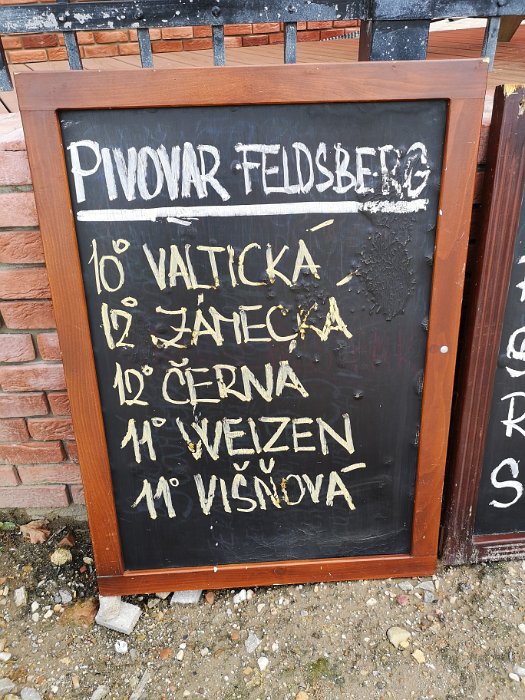 PIVOVAR FELDSBERG
10° VALTICKÁ
12° ZÁMECKÁ
12° ČERNÁ
11° WEIZEN
11° VIŠŇOVÁ